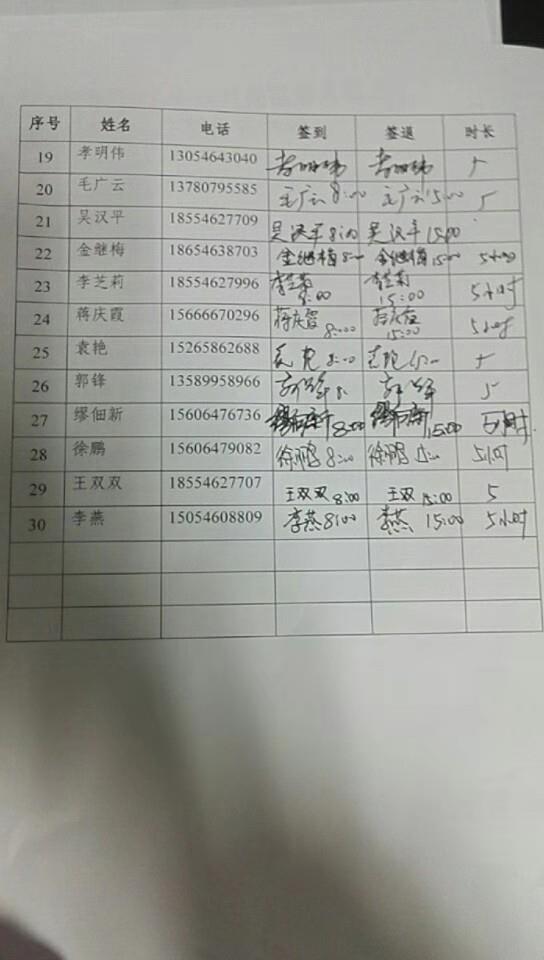 序号 姓名 电话 签到 签退 时长
19 孝明伟 13054643040
20 毛广云 13780795585 毛广云 8:00 毛广云 15:00 5
21 吴汉平 18554627709 吴汉平 8:00 吴汉平 15:00
22 金继梅 18654638703 金继梅 8:00 金继梅 15:00 5小时
23 李芝莉 18554627996 李芝莉 8:00 李芝莉 15:00 5小时
24 蒋庆霞 15666670296 蒋庆霞 8:00 蒋庆霞 15:00 5小时
25 袁艳 15265862688 袁艳 8:00 袁艳
26 郭锋 13589958966 5
27 缪佃新 15606476736 缪佃新 8:00 缪佃新 15:00 5小时
28 徐鹏 15606479082 徐鹏 8:00 徐鹏 15:00 5小时
29 王双双 18554627707 王双双 8:00 王双 15:00 5
30 李燕 15054608809 李燕 8:00 李燕 15:00 5小时